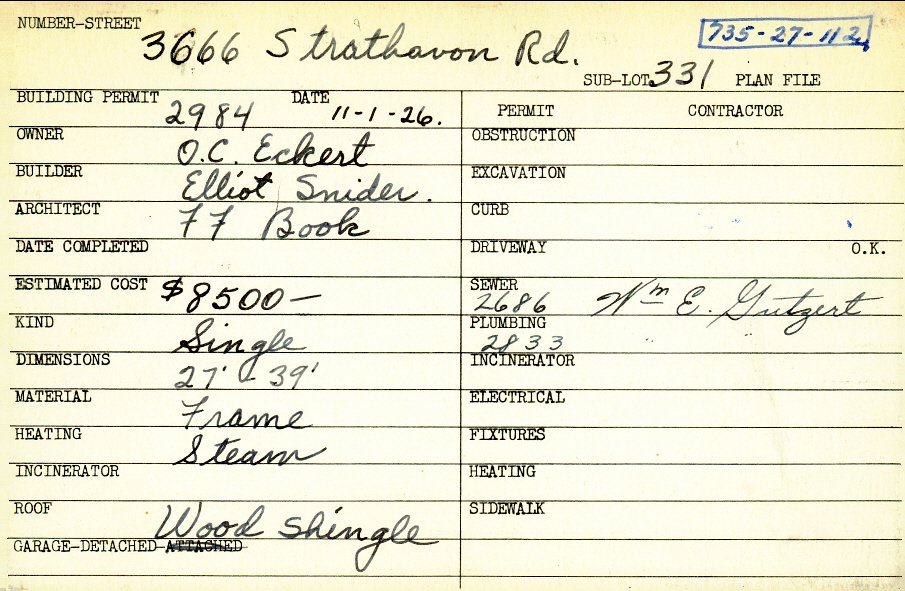 NUMBER-STREET 3666 Strathavon Rd. 735-27-112
SUB-LOT 331 PLAN FILE
BUILDING PERMIT 2984 DATE 11-1-26.
PERMIT CONTRACTOR
OWNER O.C. Eckert
OBSTRUCTION
BUILDER Elliot Snider.
EXCAVATION
ARCHITECT F F Book
CURB
DATE COMPLETED
DRIVEWAY O.K.
ESTIMATED COST $8500—
SEWER 2686 Wm E. Gutzert
KIND Single
PLUMBING 2833 " "
DIMENSIONS 27' - 39'
INCINERATOR
MATERIAL Frame
ELECTRICAL
HEATING Steam
FIXTURES
INCINERATOR
HEATING
ROOF Wood Shingle
SIDEWALK
GARAGE-DETACHED-ATTACHED